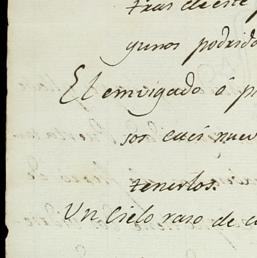 tras de este p
gunos podrido
El envigado ó p
sos casi nuev
tenerlos.
Un Cielo raso de c